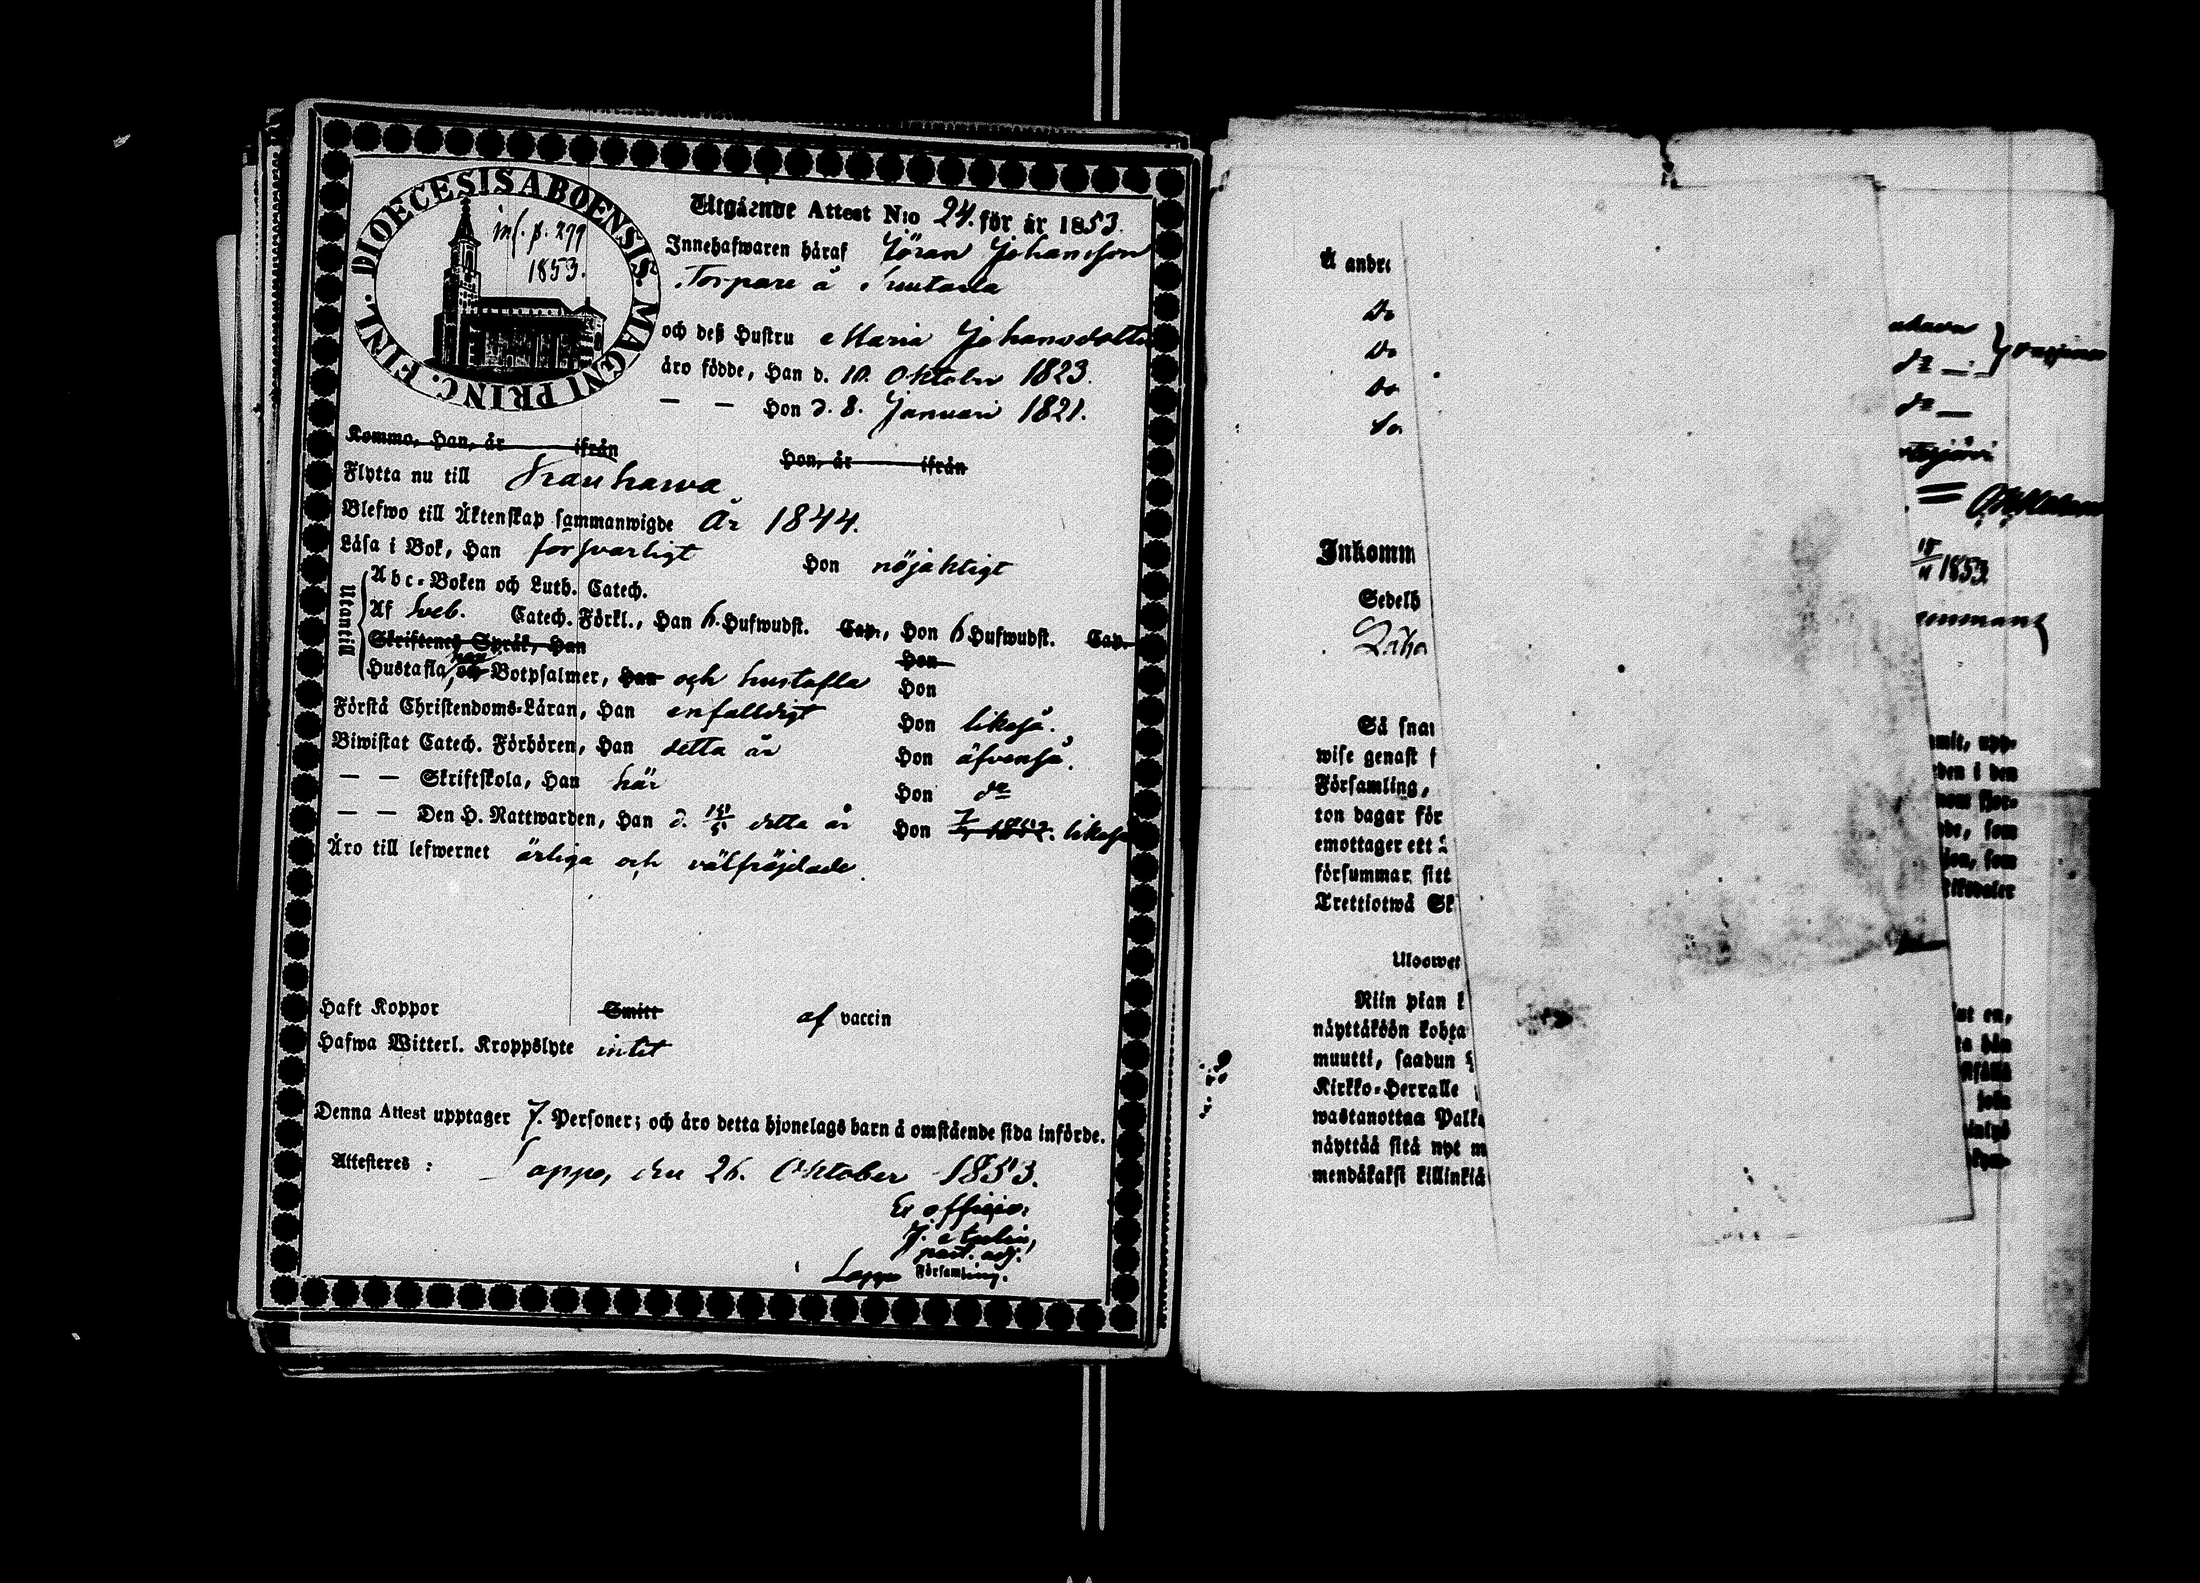 DIOECESIS ABOENSIS. MAGNI PRINC. FINL.
inf. p. 299
1853.
Utgående Attest N:o 24. för år 1853.
Innehafwaren häraf Jöran Johansson
Torpare å
och deß Hustru Maria Johansdotter
äro födde, Han d. 10. Oktober 1823.
— — Hon d. 8. Januari 1821.
Kommo, Han, år ifrån Hon, år ifrån
Flytta nu till Kauhawa
Blefwo till Äktenskap sammanwigde År 1844.
Läsa i Bok, Han försvarligt Hon nöjaktigt
Utantill
Abc-Boken och Luth. Catech.
Af Sveb. Catech. Förkl., Han 6. Hufwudst. Cap., Hon 6 Hufwudst. Cap.
Skriftenes Språk, Han Hon
Hustafla, och Botpsalmer, Han och hustafla Hon
Förstå Christendoms-Läran, Han enfaldigt Hon likaså.
Biwistat Catech. Förhören, Han detta år Hon äfvenså.
— — Skriftskola, Han här Hon do
— — Den H. Nattwarden, Han d. detta år Hon likaså
Äro till lefwernet ärliga och välfräjdade.
Haft Koppor Smitt af vaccin
Hafwa Witterl. Kroppslyte intet
Denna Attest upptager 7. Personer; och äro detta hjonelags barn å omstående sida införde.
Attesteres: Lappo, den 26. Oktober 1853.
Ex officio:
past. adj.
Lappo Församling.
Å andre
Do
Do
Do
do —
do —
Inkomm
1853
Sedelh
Så snar
mit, upp-
wise genast f
den i den
Församling,
ton dagar för
de, som
emottager ett
ion, som
försummar sitt
Riksdaler
Trettiotwå Sk
Ulosowet
Niin pian k
ut en,
näyttäköön kohta
ta hän
muutti, saadun
Kirkko-Herralle
wastanottaa Palk
näyttää sitä nyt m
mendäkaksi killinkiä